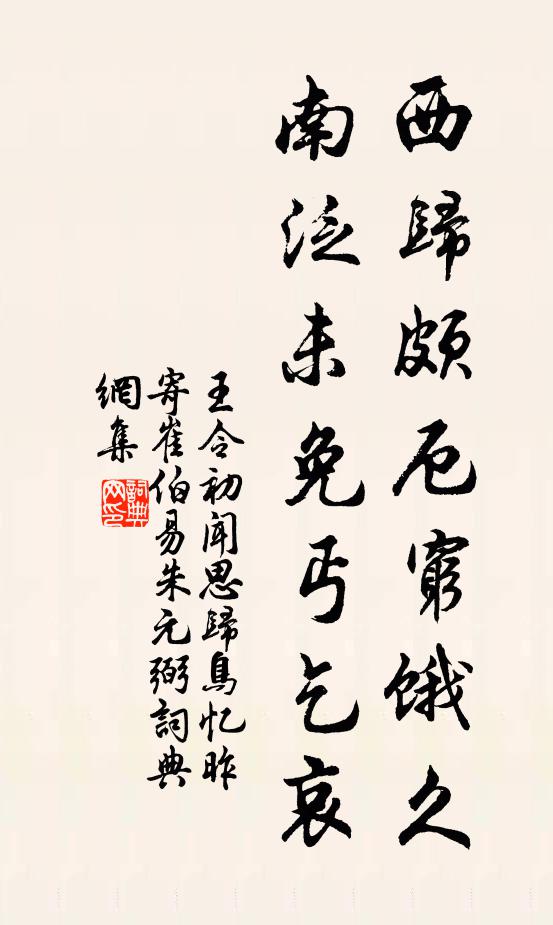 西歸頗厄窮餓久
南泛未免丐乞哀
王令初聞思歸鳥忆昨
寄崔伯易朱元弼詞典
網集
詞典
网印